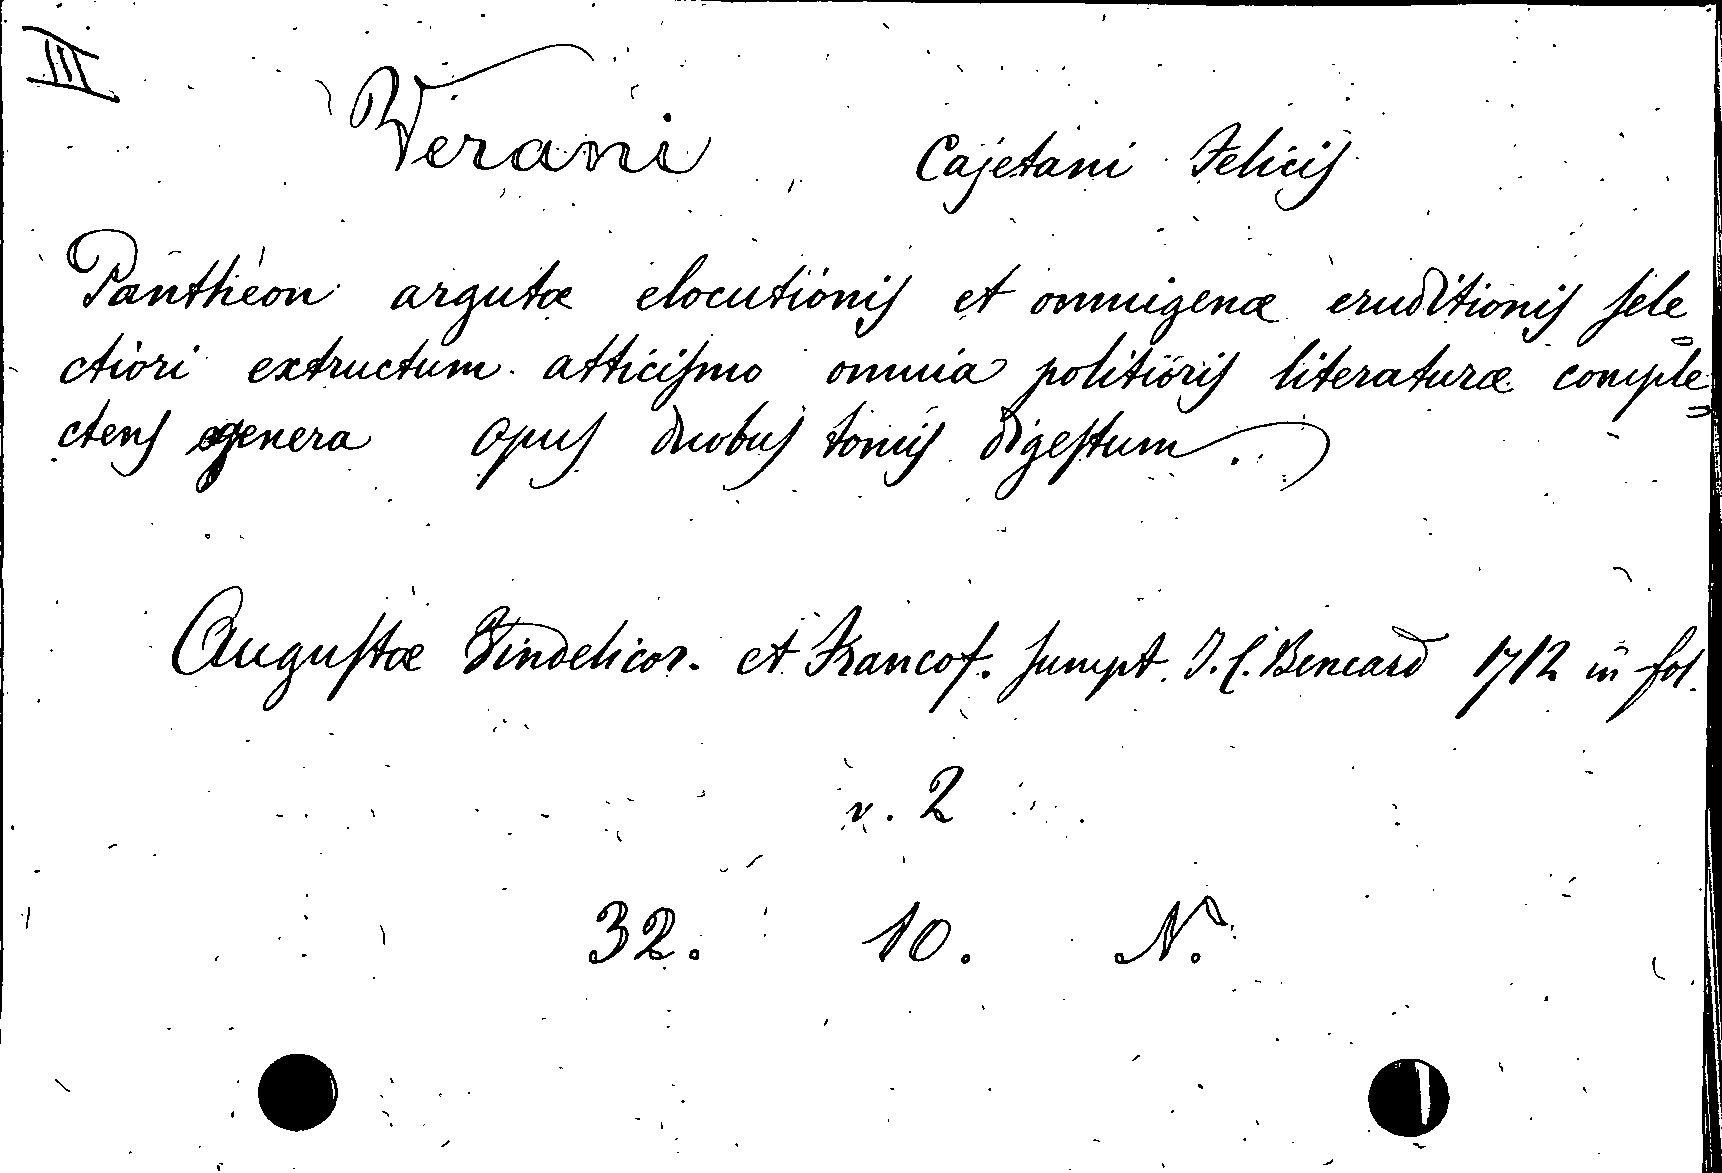 III
Verani Cajetani Felicis
Pantheon argutæ elocutionis et omnigenæ eruditionis sele=
ctiori extructum atticismo omnia politioris literaturæ comple=
ctens genera opus duobus tomis digestum.
Augustæ Vindelicor. et Francof. sumpt. J. C. Bencard 1712 in fol.
v. 2
32. 10. N.